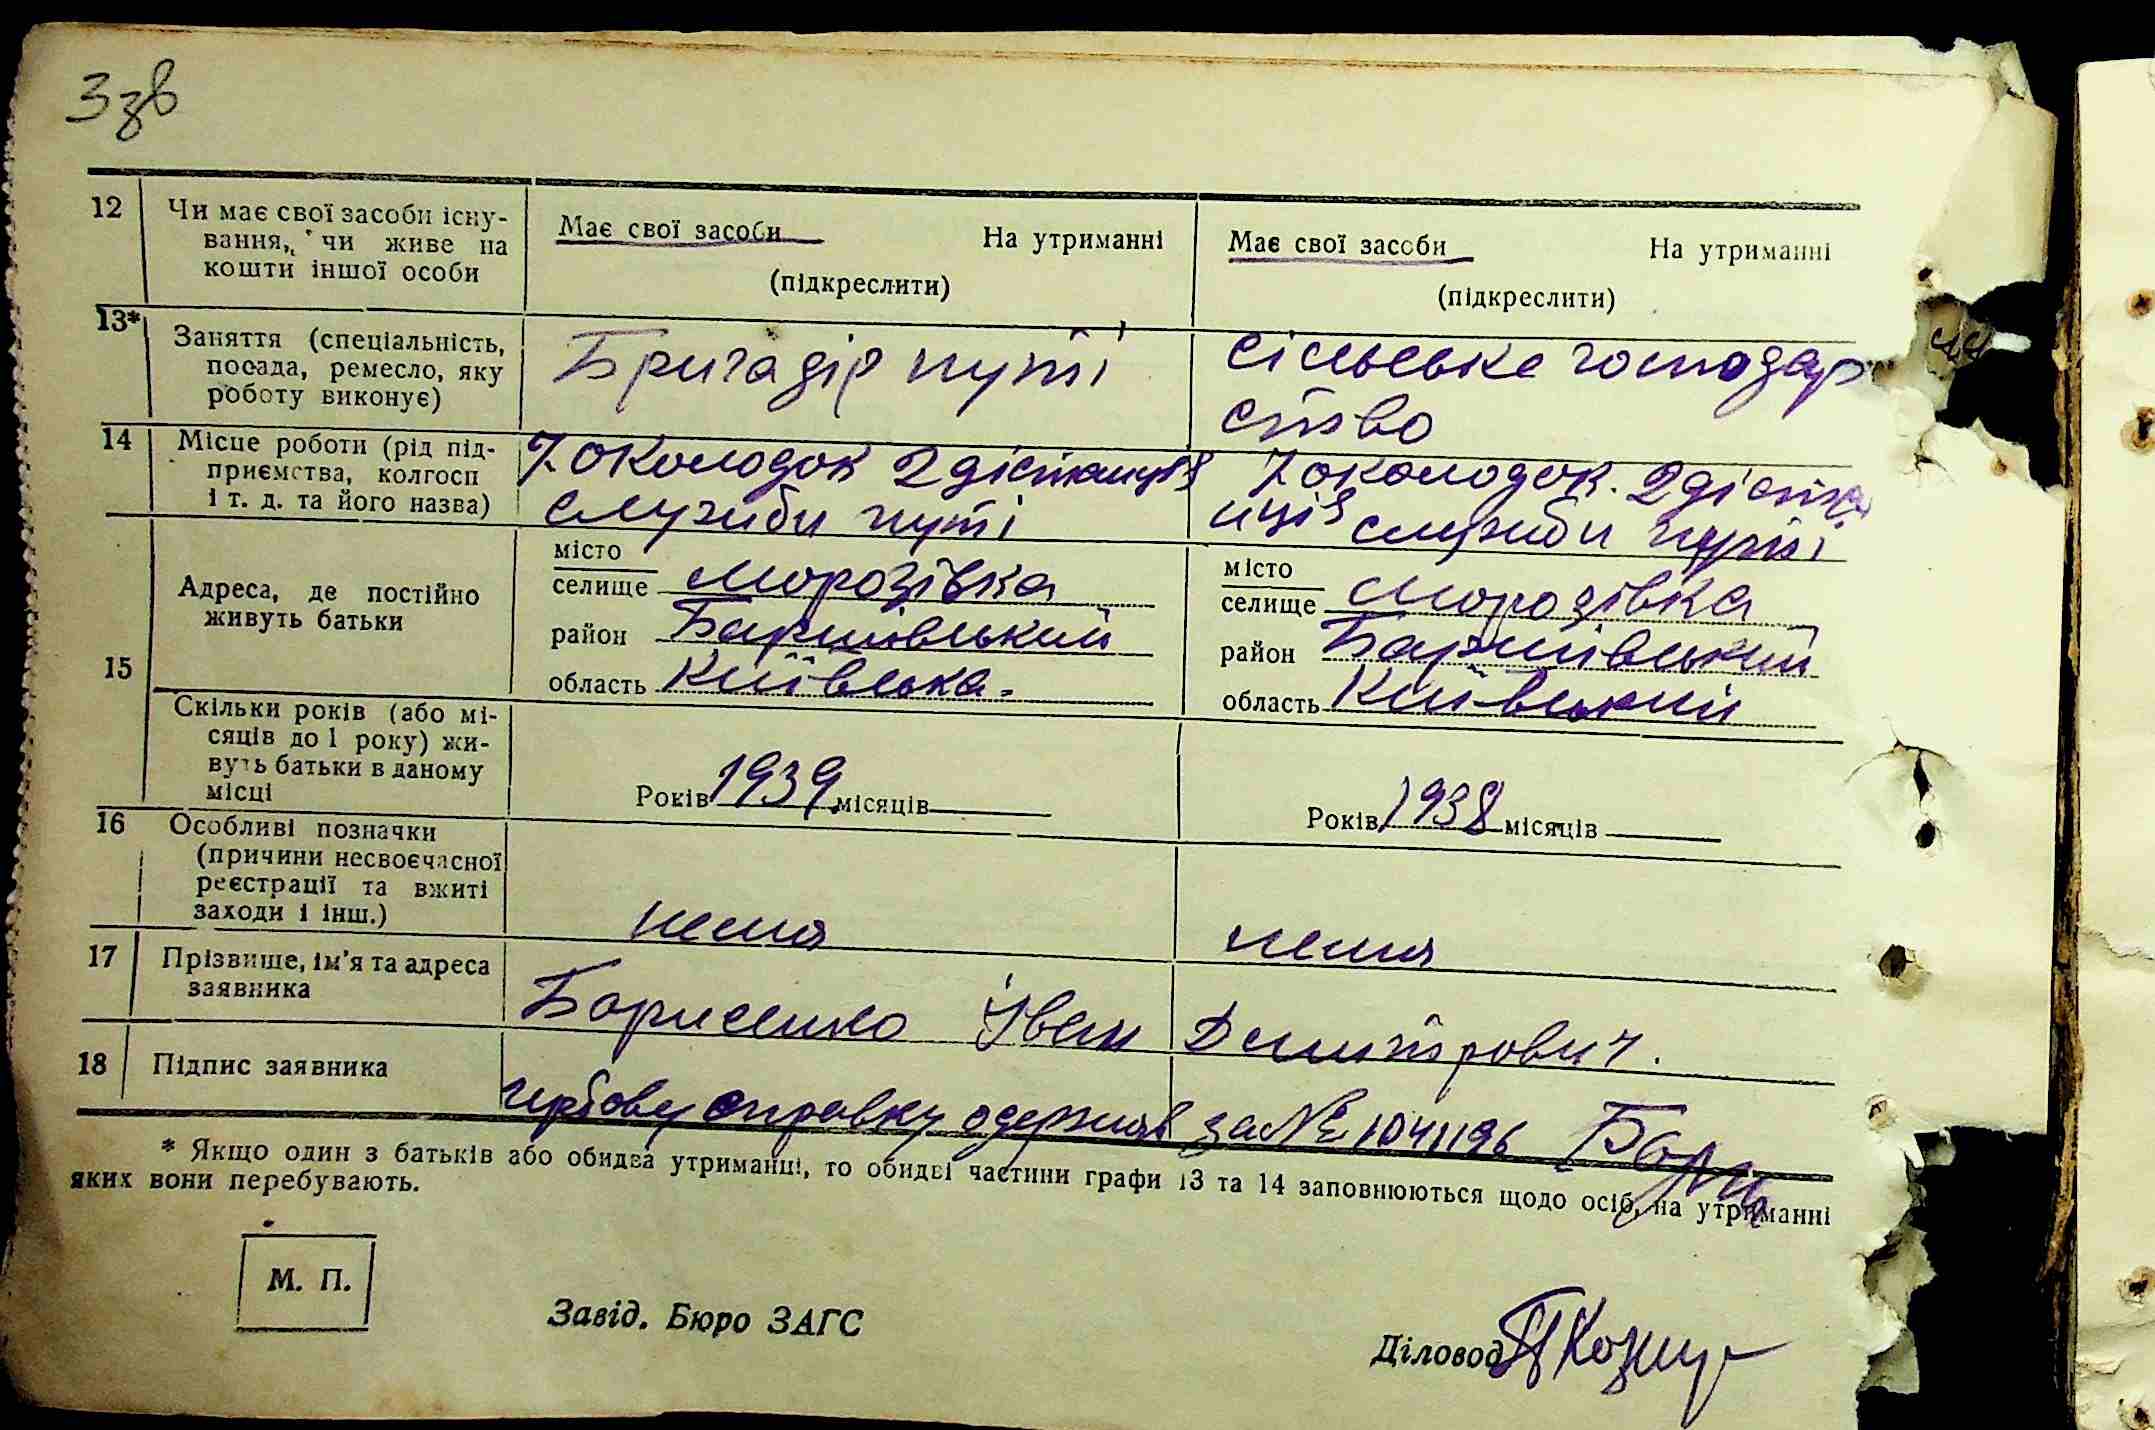 3 зв
12 Чи має свої засоби існу-
вання, чи живе на
кошти іншої особи
Має свої засоби На утриманні
(підкреслити)
Має свої засоби На утриманні
(підкреслити)
13* Заняття (спеціальність,
посада, ремесло, яку
роботу виконує)
Бригадір путі
сільське господар
ство
14 Місце роботи (рід під-
приємства, колгосп
і т. д. та його назва)
7 околодок 2 дістанція
служби путі
7 околодок. 2 діста
нція служби путі
15 Адреса, де постійно
живуть батьки
місто
селище Морозівка
район Баришівський
область Київська.
місто
селище Морозівка
район Баришівський
область Київський
Скільки років (або мі-
сяців до 1 року) жи-
вуть батьки в даному
місці
Років 1939 місяців
Років 1938 місяців
16 Особливі позначки
(причини несвоєчасної
реєстрації та вжиті
заходи і інш.)
нема
нема
17 Прізвище, ім'я та адреса
заявника
Борисенко Іван Дмитрович.
18 Підпис заявника
гербову справку одержав за № 1041196 Бори
* Якщо один з батьків або обидва утриманці, то обидві частини графи 13 та 14 заповнюються щодо осіб, на утриманні
яких вони перебувають.
М. П.
Завід. Бюро ЗАГС
Діловод